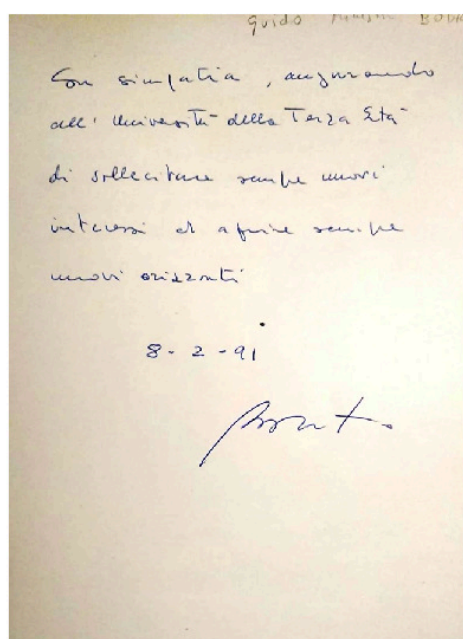 Guido
Con simpatia, augurando
all'Università della Terza Età
di sollecitare sempre nuovi
interessi ed aprire sempre
nuovi orizzonti
8 - 2 - 91